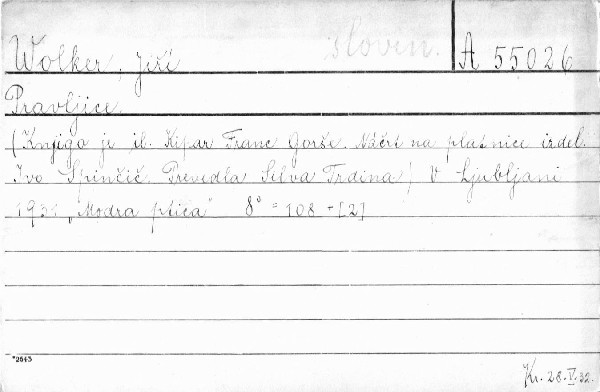 slovin.
Wolker, Jiří A 55026
Pravljice.
(Knjigo je il. Kipar Franc Gorše. Náčrt na platnice izdel.
Ivo Spinčič. Prevedla Silva Trdina) V Ljubljani
1931 "Modra ptica" 8° = 108 + [2]
*2543
Kr. 28. V. 32.